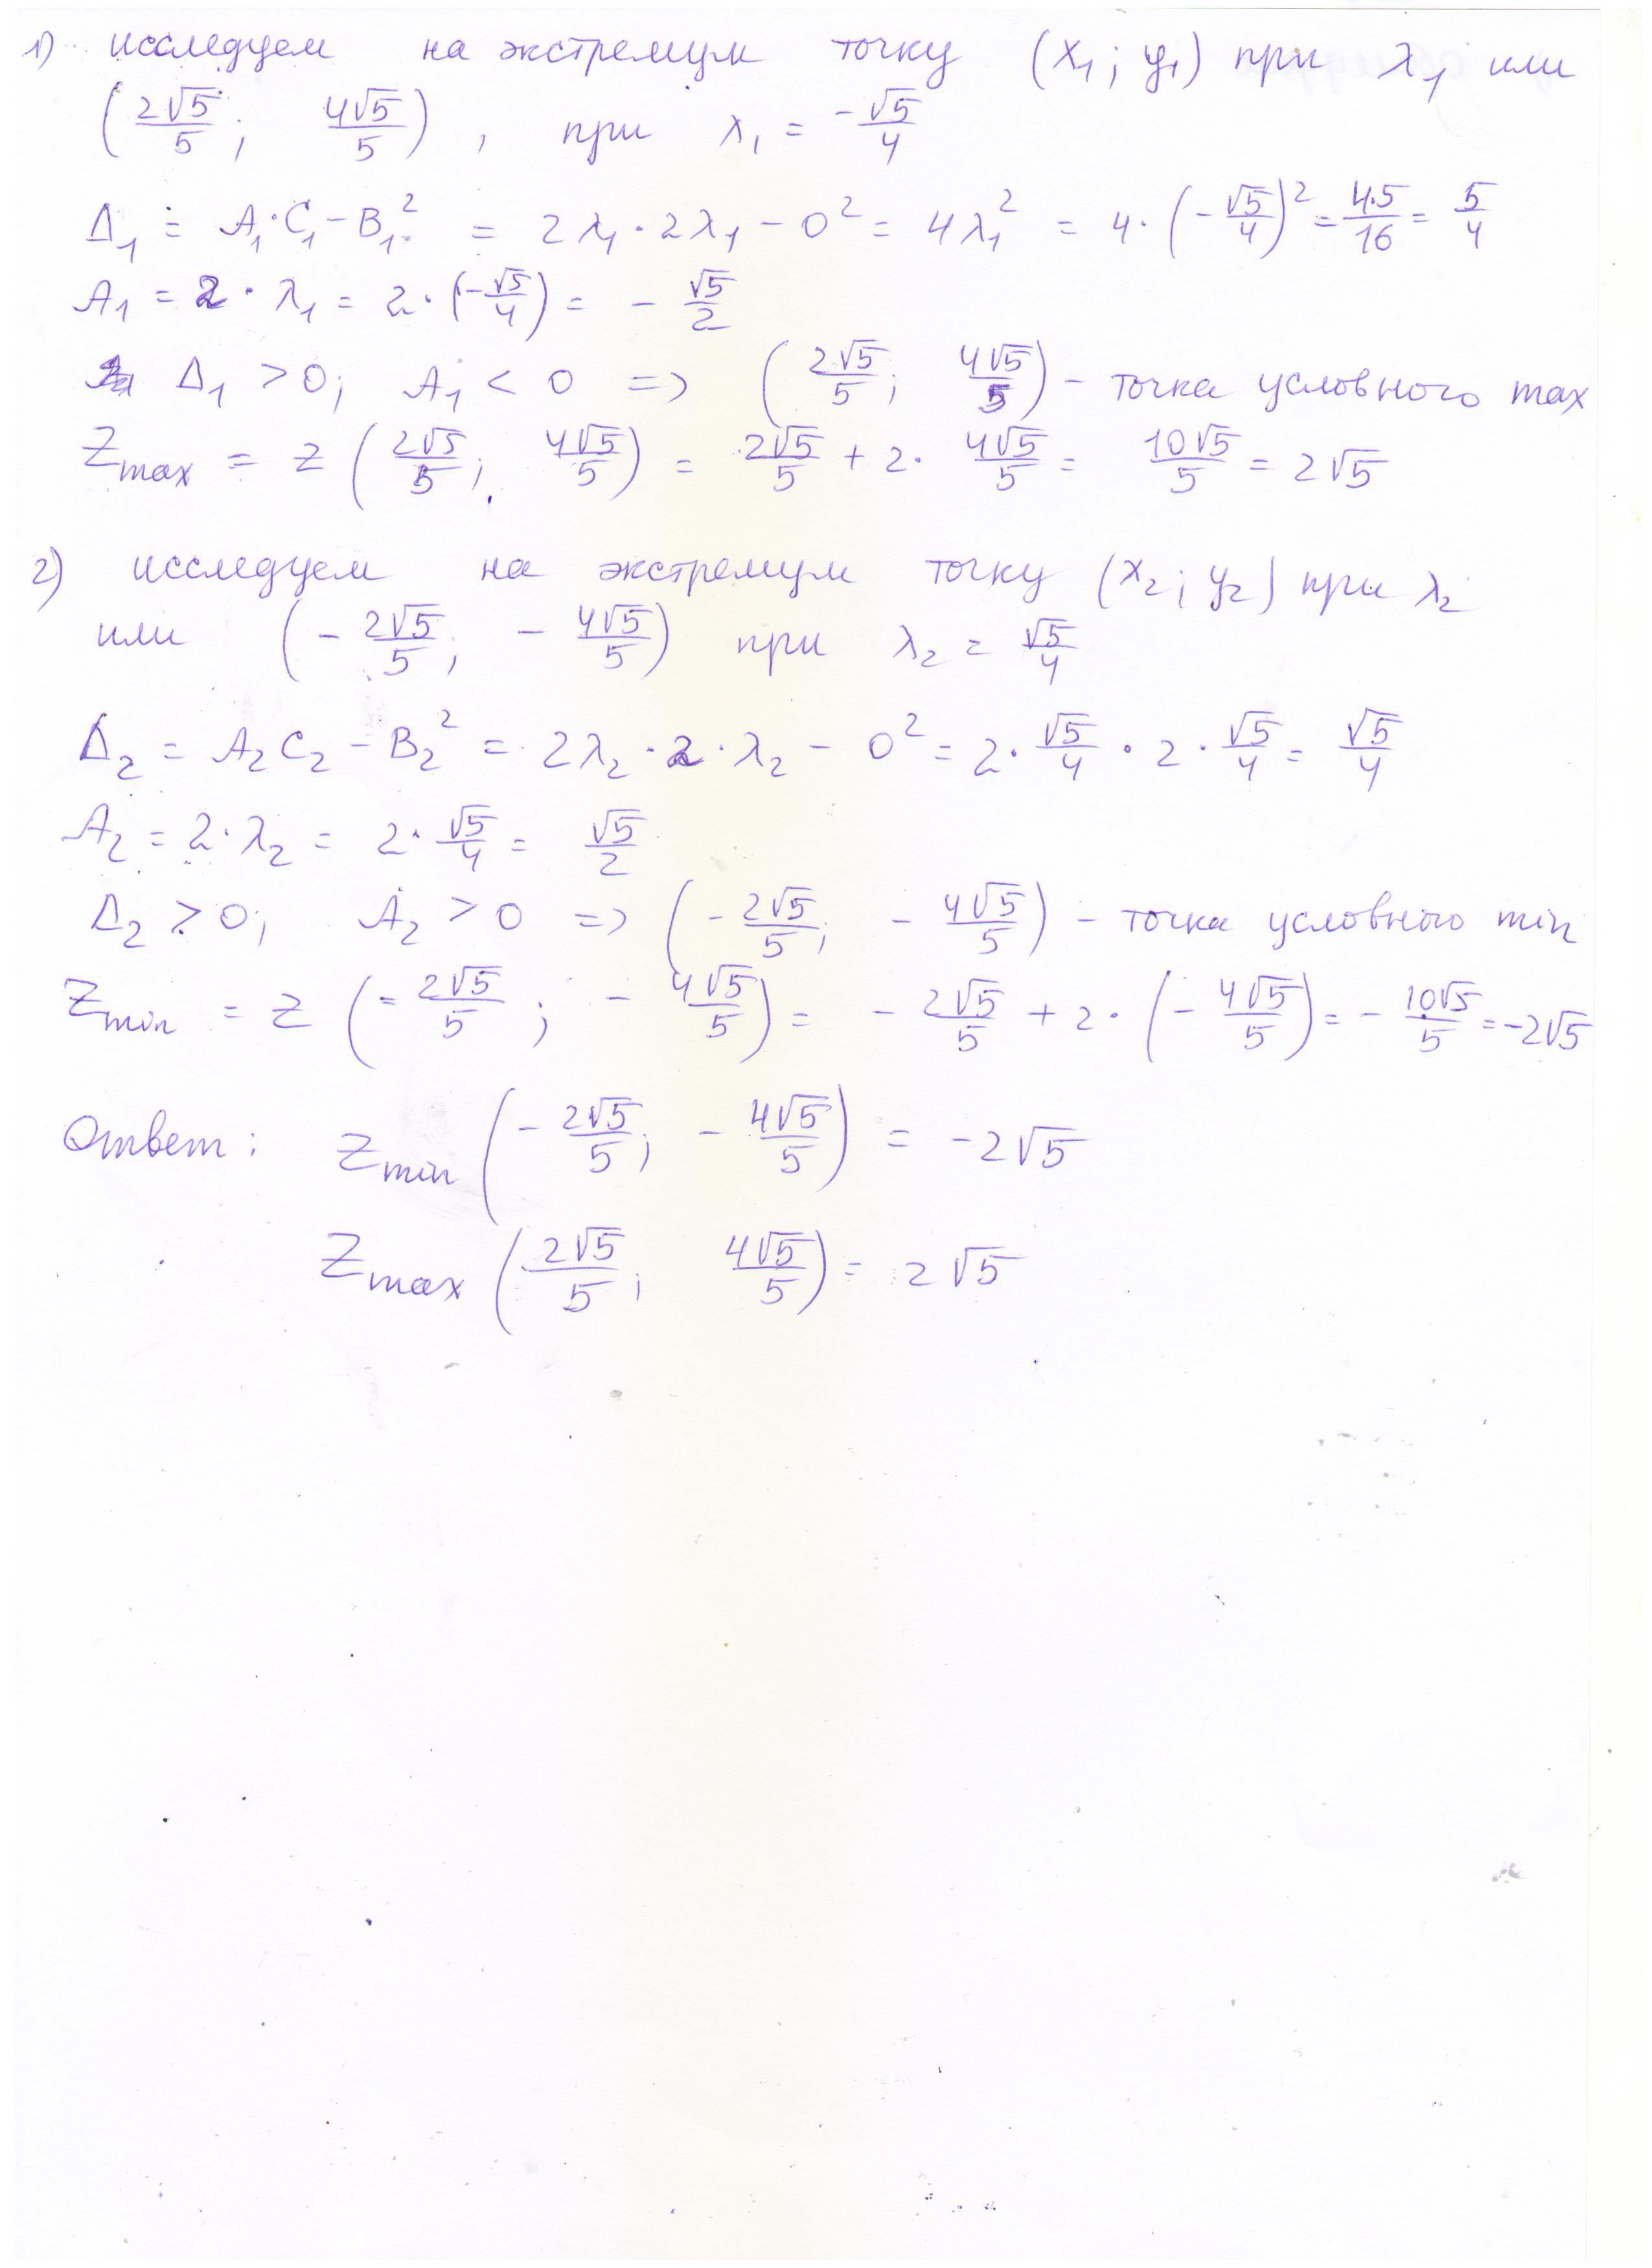 1) исследуем на экстремум точку (x₁; y₁) при λ₁ или
(2√5/5; 4√5/5), при λ₁ = -√5/4
Δ₁ = A₁·C₁ - B₁² = 2λ₁·2λ₁ - 0² = 4λ₁² = 4·(-√5/4)² = 4·5/16 = 5/4
A₁ = 2·λ₁ = 2·(-√5/4) = -√5/2
Δ₁ > 0; A₁ < 0 => (2√5/5; 4√5/5) - точка условного max
Zmax = z(2√5/5; 4√5/5) = 2√5/5 + 2·4√5/5 = 10√5/5 = 2√5
2) исследуем на экстремум точку (x₂; y₂) при λ₂
или (-2√5/5; -4√5/5) при λ₂ = √5/4
Δ₂ = A₂C₂ - B₂² = 2λ₂·2·λ₂ - 0² = 2·√5/4·2·√5/4 = √5/4
A₂ = 2·λ₂ = 2·√5/4 = √5/2
Δ₂ > 0; A₂ > 0 => (-2√5/5; -4√5/5) - точка условного min
Zmin = z(-2√5/5; -4√5/5) = -2√5/5 + 2·(-4√5/5) = -10√5/5 = -2√5
Ответ: Zmin(-2√5/5; -4√5/5) = -2√5
Zmax(2√5/5; 4√5/5) = 2√5